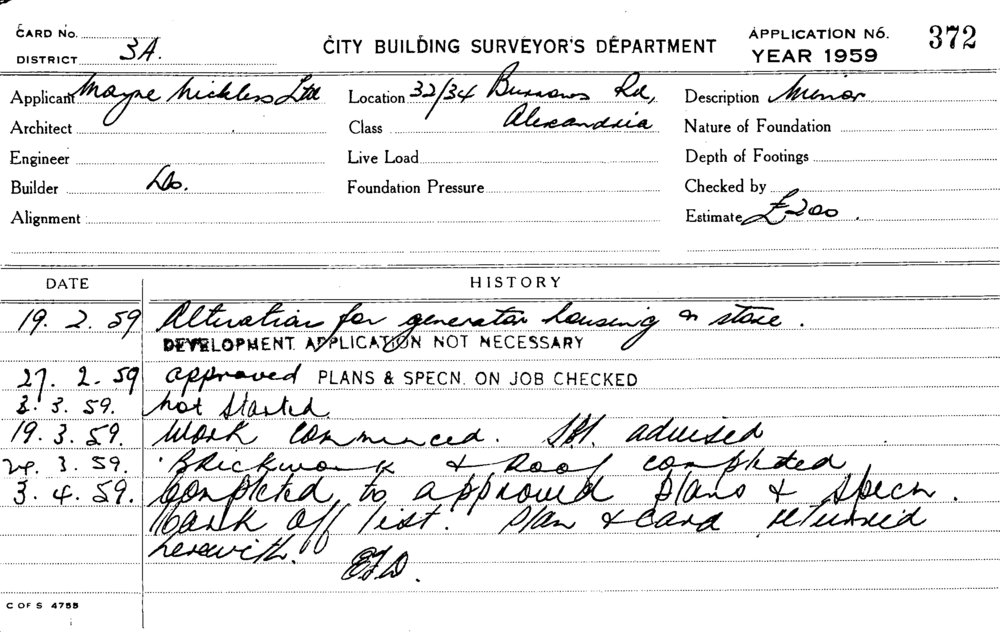 CARD No.
DISTRICT 3A.
CITY BUILDING SURVEYOR'S DEPARTMENT
APPLICATION No. 372
YEAR 1959
Applicant Mayne Nickless Ltd
Location 32/34 Burrows Rd,
Alexandria
Description Minor
Architect
Class
Nature of Foundation
Engineer
Live Load
Depth of Footings
Builder Do.
Foundation Pressure
Checked by
Alignment
Estimate £200.
DATE HISTORY
19. 2. 59 Alteration for generator housing & store.
DEVELOPMENT APPLICATION NOT NECESSARY
27. 2. 59 approved PLANS & SPECN. ON JOB CHECKED
3. 3. 59. Not Started
19. 3. 59. Work commenced. advised
3. 59. Brickwork & Roof completed
3. 4. 59. Completed to approved plans & specn.
Mark off list. Plan & card returned
herewith.
C OF S 4755